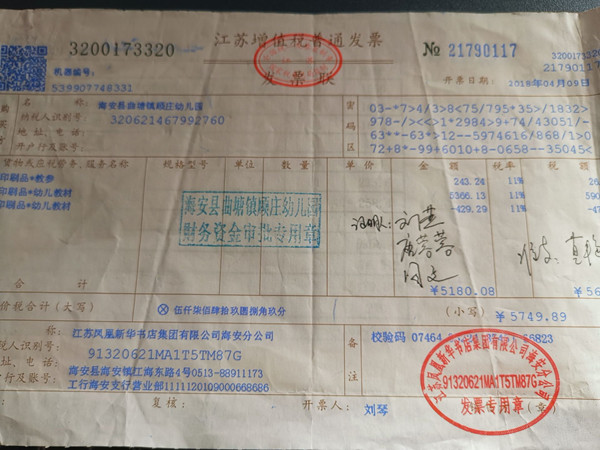 3200173320
江苏增值税普通发票
发票联
№ 21790117
3200173320
21790117
机器编号:
539907748331
开票日期: 2018年04月09日
名称: 海安县曲塘镇顾庄幼儿园
纳税人识别号: 320621467992760
地址、电话:
开户行及账号:
密码区
03-*7>4/3>8<75/795*35>/1832>
978-/><<>1*2984>9+74/43051/-
63**-63*>12--5974616/868/1>0
72+8*-99+6010+8-0658--35045<
货物或应税劳务、服务名称 规格型号 单位 数量 单价 金额 税率 税
印刷品*教参 243.24 11%
印刷品*幼儿教材 5366.13 11%
印刷品*幼儿教材 -429.29 11%
海安县曲塘镇顾庄幼儿园
财务资金审批专用章
证明人:
合计 ¥5180.08
价税合计(大写) 伍仟柒佰肆拾玖圆捌角玖分 (小写) ¥5749.89
称: 江苏凤凰新华书店集团有限公司海安分公司
税人识别号: 91320621MA1T5TM87G
址、电话: 海安县海安镇江海东路4号0513-88911113
户行及账号: 工行海安支行营业部1111120109000668686
备注
校验码 07464
江苏凤凰新华书店集团有限公司海安分公司
91320621MA1T5TM87G
发票专用章
复核: 开票人: 刘琴 (章)